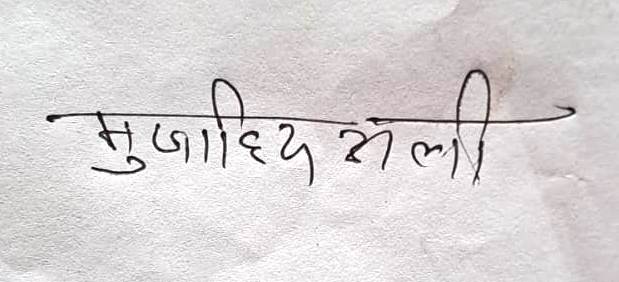 मुजाहिद अली